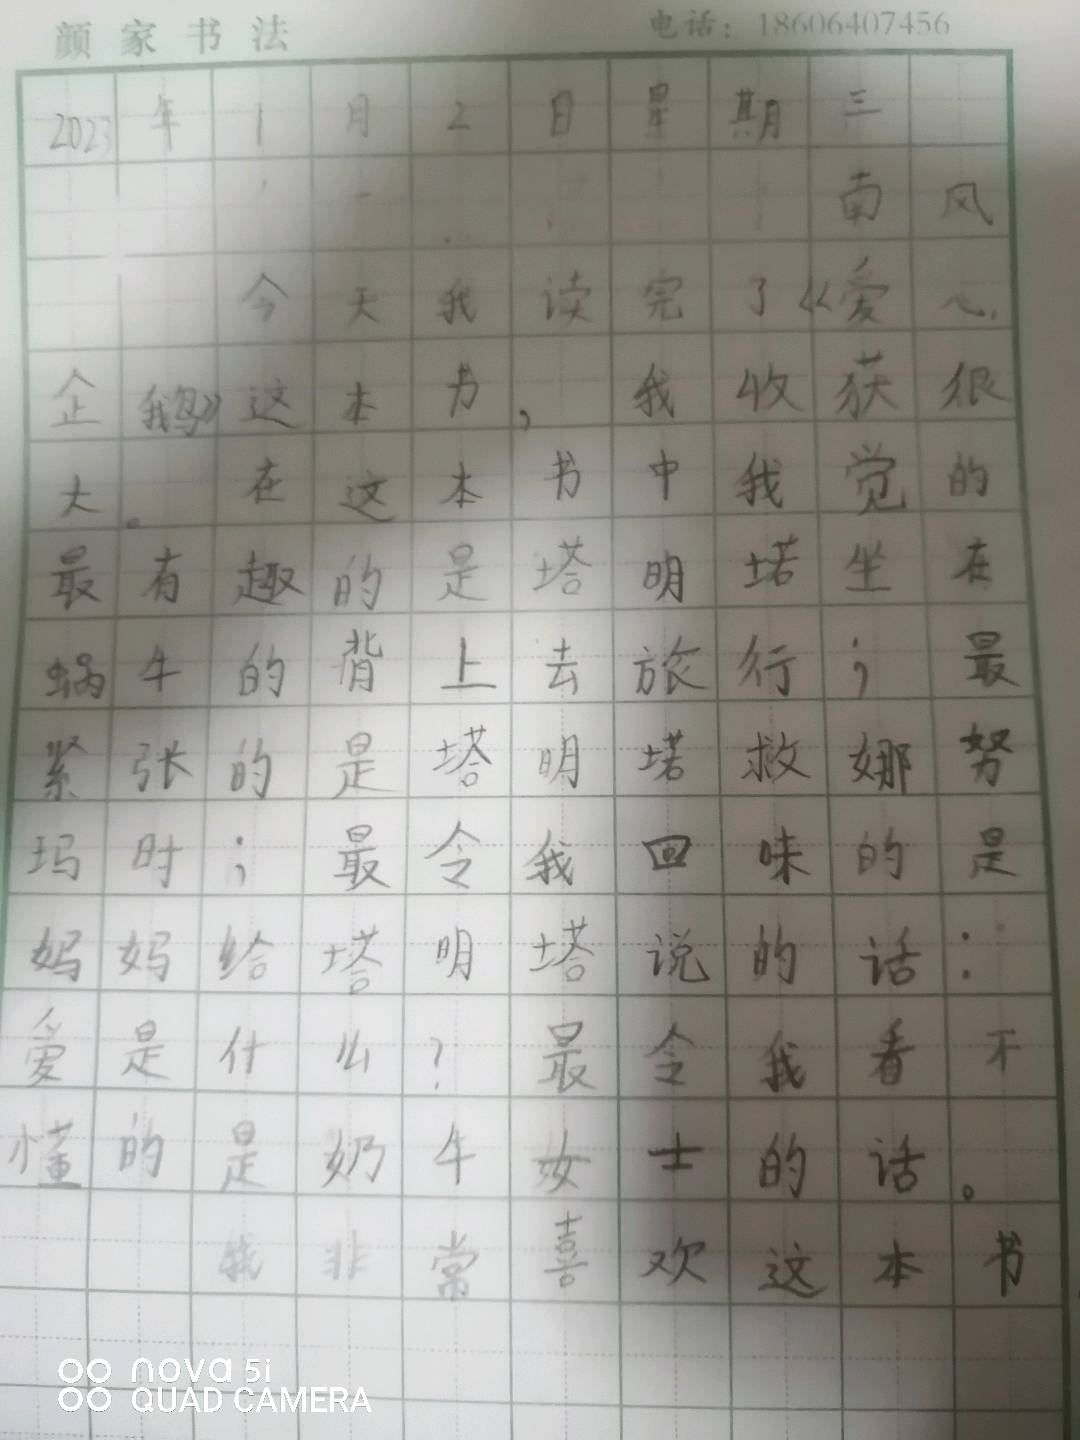 颜家书法 电话：18606407456
2023年1月2日星期三
南风
今天我读完了《爱心
企鹅》这本书，我收获很
大。在这本书中我觉的
最有趣的是塔明塔坐在
蜗牛的背上去旅行；最
紧张的是塔明塔救娜努
玛时；最令我回味的是
妈妈给塔明塔说的话：
爱是什么？最令我看不
懂的是奶牛女士的话。
我非常喜欢这本书
nova 5i
QUAD CAMERA